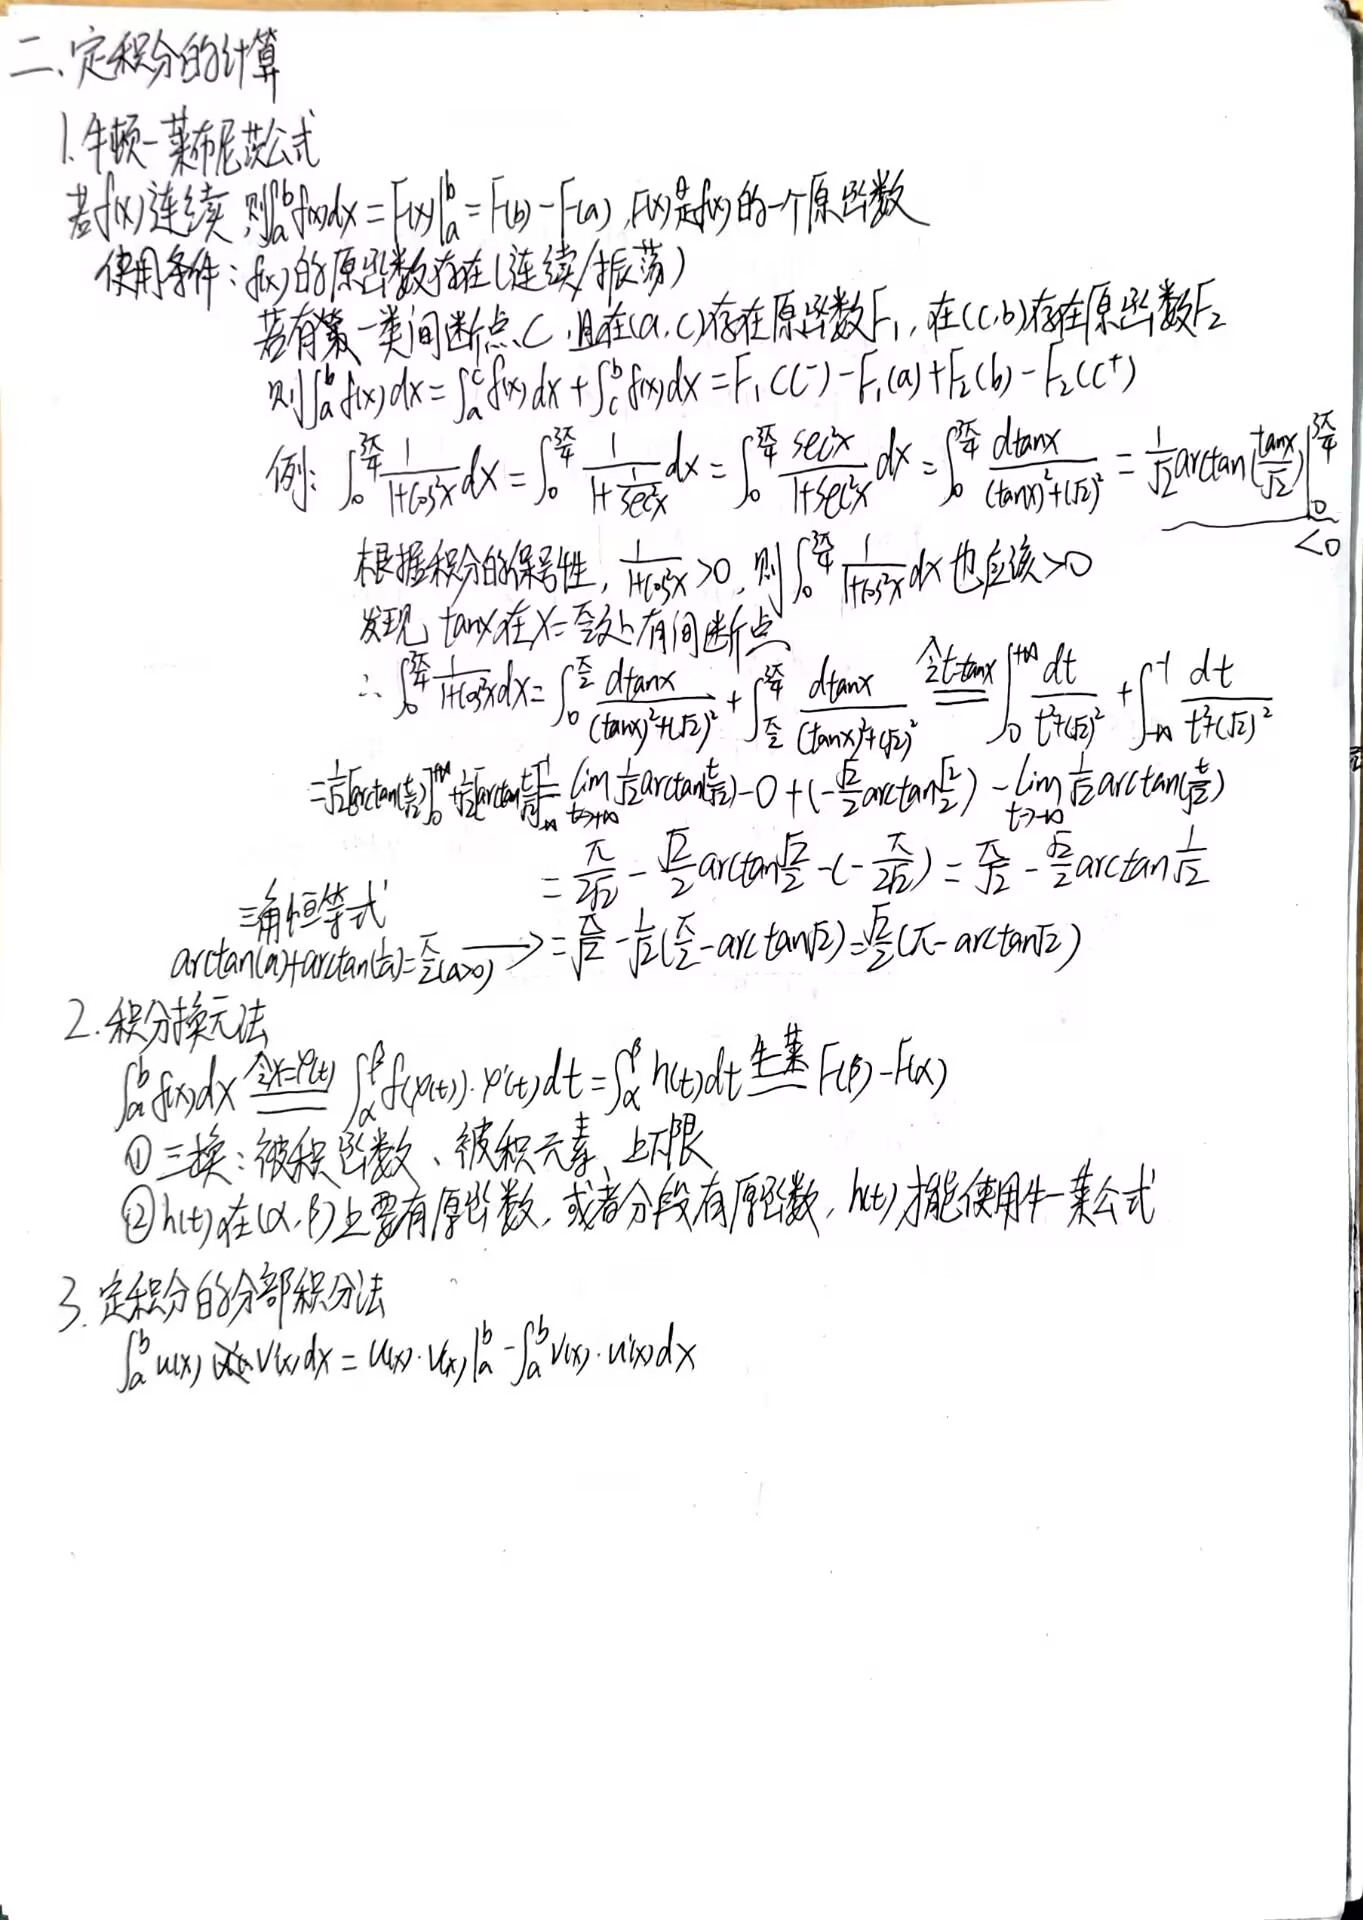 二、定积分的计算
1.牛顿-莱布尼茨公式
若f(x)连续,则∫_a^b f(x)dx=F(x)|_a^b=F(b)-F(a),F(x)是f(x)的一个原函数
使用条件:f(x)的原函数存在(连续/振荡)
若有第一类间断点C,且在(a,c)存在原函数F₁,在(c,b)存在原函数F₂
则∫_a^b f(x)dx=∫_a^c f(x)dx+∫_c^b f(x)dx=F₁(C⁻)-F₁(a)+F₂(b)-F₂(C⁺)
例:∫_0^{3π/4} 1/(1+cos²x) dx=∫_0^{3π/4} 1/(1+1/sec²x) dx=∫_0^{3π/4} sec²x/(1+sec²x) dx=∫_0^{3π/4} dtanx/((tanx)²+(√2)²)=1/√2 arctan(tanx/√2)|_0^{3π/4}
<0
根据积分的保号性,1/(1+cos²x)>0,则∫_0^{3π/4} 1/(1+cos²x) dx也应该>0
发现tanx在x=π/2处有间断点
∴∫_0^{3π/4} 1/(1+cos²x) dx=∫_0^{π/2} dtanx/((tanx)²+(√2)²)+∫_{π/2}^{3π/4} dtanx/((tanx)²+(√2)²) 令t=tanx ∫_0^{+∞} dt/(t²+(√2)²)+∫_{-∞}^{-1} dt/(t²+(√2)²)
=1/√2[arctan(t/√2)]_0^{+∞}+1/√2[arctan(t/√2)]_{-∞}^{-1}=lim_{t→+∞} 1/√2 arctan(t/√2)-0+(-√2/2 arctan√2/2)-lim_{t→-∞} 1/√2 arctan(t/√2)
=π/(2√2)-√2/2 arctan√2/2-(-π/(2√2))=π/√2-√2/2 arctan 1/√2
三角恒等式
arctan(a)+arctan(1/a)=π/2(a>0) → =π/√2-1/√2(π/2-arctan√2)=√2/2(π-arctan√2)
2.积分换元法
∫_a^b f(x)dx 令x=φ(t) ∫_α^β f(φ(t))·φ'(t)dt=∫_α^β h(t)dt 牛莱 F(β)-F(α)
①三换:被积函数、被积元素、上下限
②h(t)在(α,β)上要有原函数,或者分段有原函数,h(t)才能使用牛-莱公式
3.定积分的分部积分法
∫_a^b u(x) v'(x)dx=u(x)·v(x)|_a^b-∫_a^b v(x)·u'(x)dx